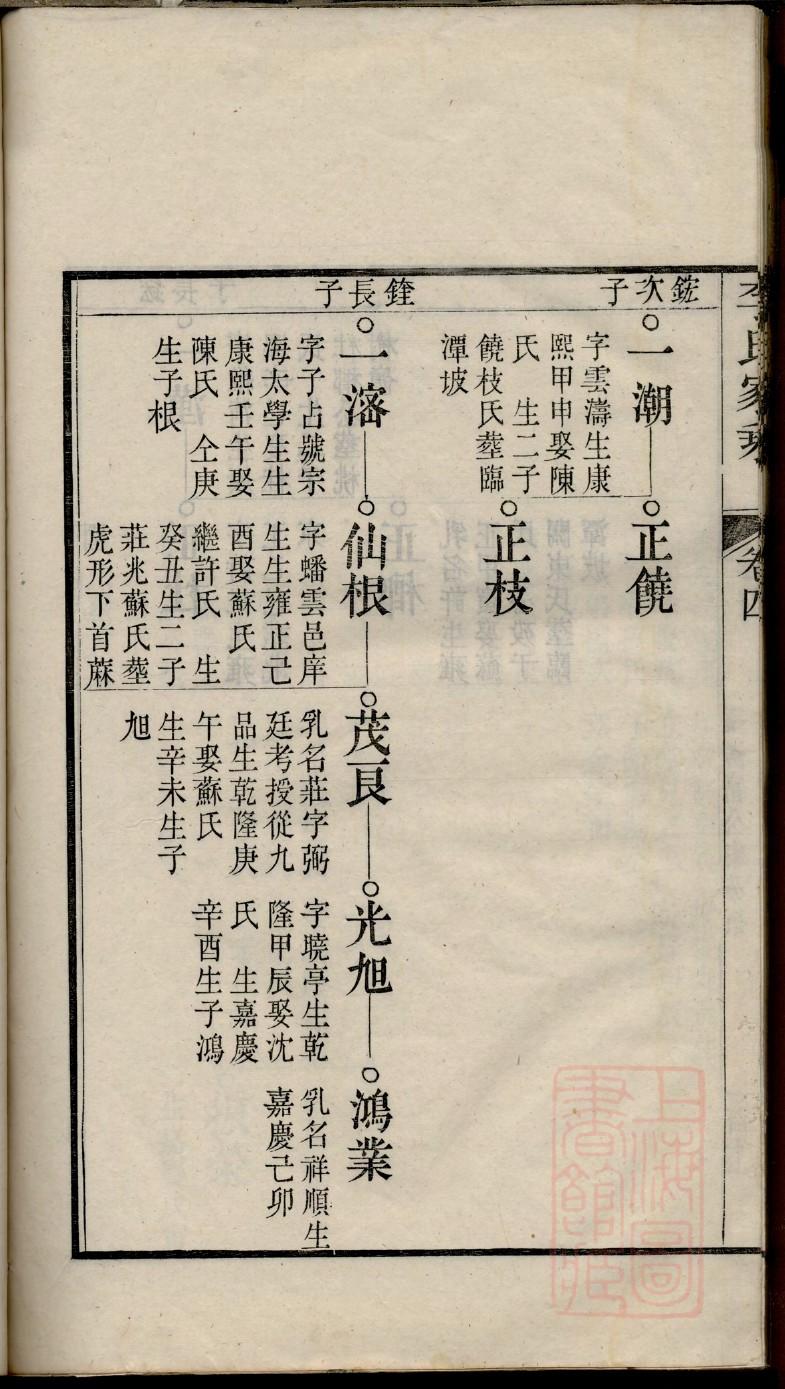 李氏家乘
卷四
鋐次子
一潮
字雲濤生康
熙甲申娶陳
氏 生二子
饒枝氏塟臨
潭坡
正饒
正枝
銓長子
一濬
字子占號宗
海太學生生
康熙壬午娶
陳氏 仝庚
生子根
仙根
字蟠雲邑庠
生生雍正己
酉娶蘇氏
繼許氏 生
癸丑生二子
莊兆蘇氏塟
虎形下首蔴
茂艮
乳名莊字弼
廷考授從九
品生乾隆庚
午娶蘇氏
生辛未生子
旭
光旭
字曉亭生乾
隆甲辰娶沈
氏 生嘉慶
辛酉生子鴻
鴻業
乳名祥順生
嘉慶己卯
上海圖
書館藏